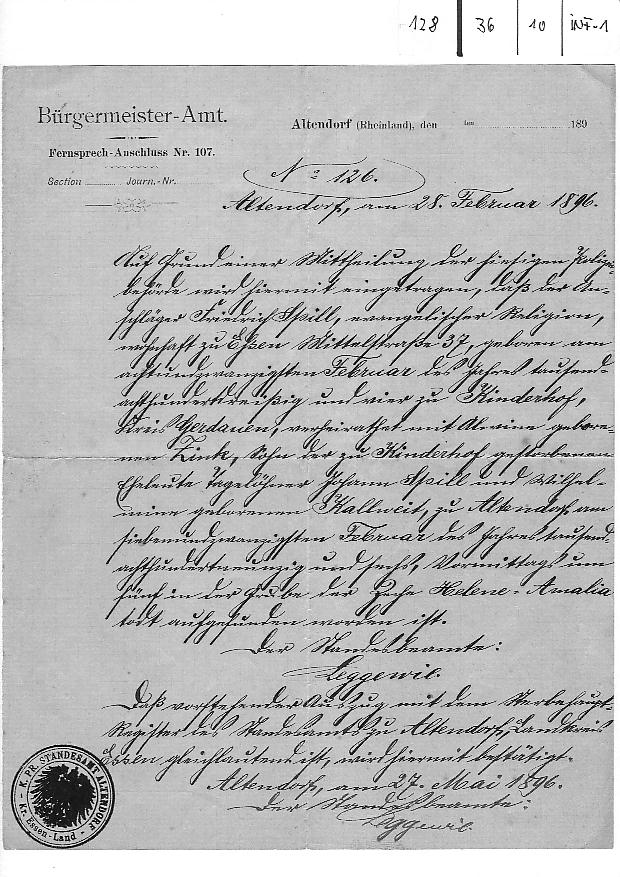 128 36 10 INF-1
Bürgermeister-Amt.
Altendorf (Rheinland), den ten 189
Fernsprech-Anschluss Nr. 107.
Section Journ.-Nr.
No 126.
Altendorf, am 28. Februar 1896.
Auf Grund einer Mittheilung der hiesigen Polizei-
behörde wird hiermit eingetragen, daß der An-
schläger Friedrich Spill, evangelischer Religion,
wohnhaft zu Essen Mittelstraße 37, geboren am
achtundzwanzigsten Februar des Jahres tausend-
achthundertdreißig und vier zu Kinderhof,
Kreis Gerdauen, verheirathet mit Alwine gebore-
nen Zink, Sohn der zu Kinderhof gestorbenen
Eheleute Tagelöhner Johann Spill und Wilhel-
mine geborenen Kallweit, zu Altendorf am
siebenundzwanzigsten Februar des Jahres tausend-
achthundertneunzig und sechs, Vormittags um
fünf in der Grube der Zeche Helene-Amalia
todt aufgefunden worden ist.
Der Standesbeamte:
Leggewie.
Daß vorstehender Auszug mit dem Sterbehaupt-
Register des Standesamts zu Altendorf, Landkreis
Essen gleichlautend ist, wird hiermit bestätigt.
Altendorf, am 27. Mai 1896.
Der Standesbeamte:
Leggewie.
K. PR. STANDESAMT ALTENDORF
Kr. Essen-Land